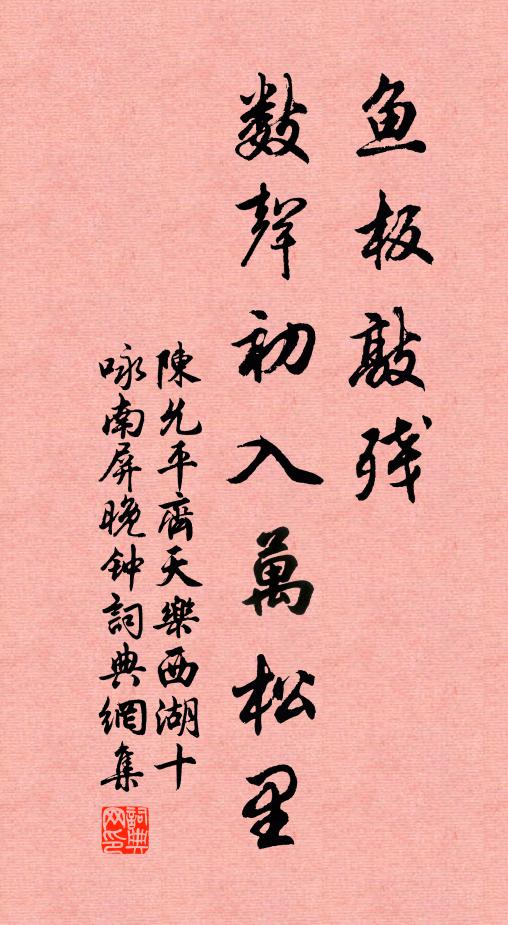 鱼板敲残
数聲初入萬松里
陳允平齊天樂西湖十
咏南屏晚钟詞典網集
詞典
网印